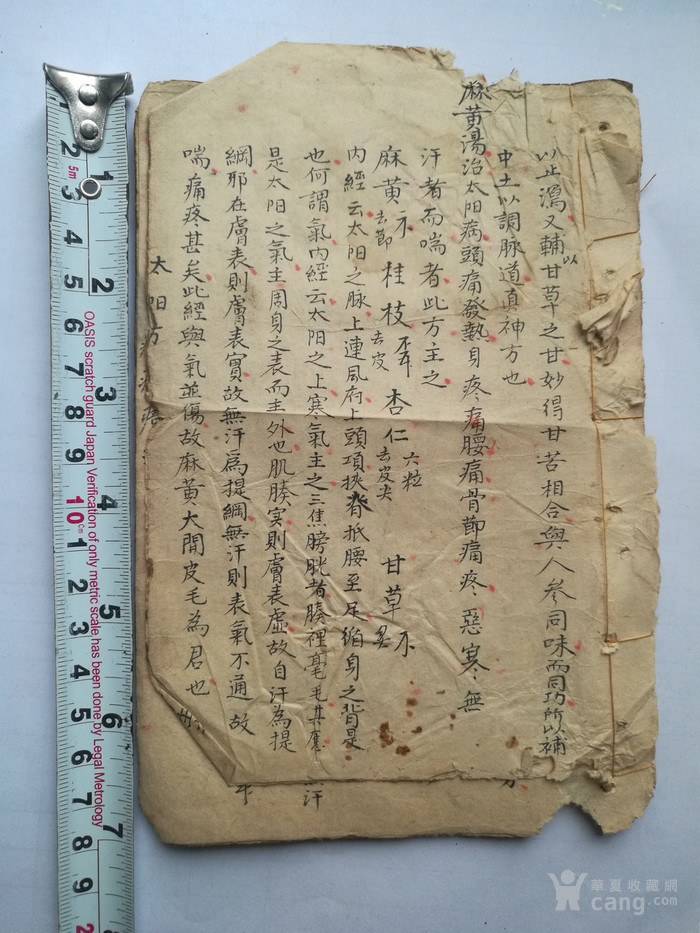 以止瀉又輔以甘草之甘妙得甘苦相合與人參同味而同功所以補
中土以調脉道真神方也
麻黄湯治太阳病頭痛發熱身疼痛腰痛骨節痛疼惡寒無
汗者而喘者此方主之
麻黄 去節 桂枝 去皮 杏仁 六粒 去皮尖 甘草
内經云太阳之脉上連風府上頭項挾脊抵腰至足循身之背是
也何謂氣内經云太阳之上寒氣主之三焦膀胱者腠裡毫毛其應
是太阳之氣主周身之表而主外也肌腠实則膚表虛故自汗為提
綱邪在膚表則膚表實故無汗為提綱無汗則表氣不通故
喘痛疼甚矣此經與氣並傷故麻黄大開皮毛為君也
太阳方
汗
OASIS scratch guard Japan Verification of only metric scale has been done by Legal Metrology
5m
1 2 3 4 5 6 7 8 9 10 cm 1 2 3 4 5 6 7 8 9 2
1 2 3 4 5 6 7
華夏收藏網
cang.com